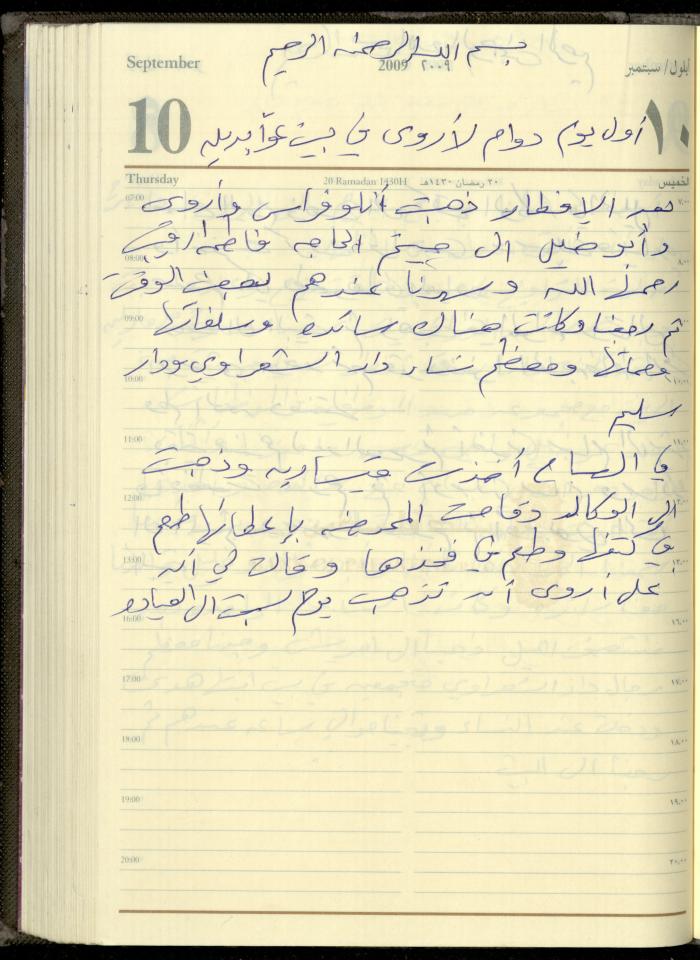 بسم الله الرحمن الرحيم
September
2009 ٢٠٠٩
أيلول / سبتمبر
10
أول يوم دوام لأروى في بيت عوا بديله
١٠
Thursday
20 Ramadan 1430H
٢٠ رمضان ١٤٣٠هـ
الخميس
07:00 بعد الإفطار ذهبت أنا وفراس وأروى ٧:٠٠
وأبو خليل الى بيت الحاجه فاطمه
08:00 رحمها الله وسهرنا عندهم لصف الوقت
09:00 ثم رجعنا وكانت هناك سائده وسلفاتها
وعماتها ومعظم نساء دار الشعراوي ودار
10:00 ١٠:٠٠
سليم
11:00 ١١:٠٠
في المساء أخذت وذهبت
12:00 الى الوكاله وقامت الممرضه بإعطائها طعم
13:00 في كتفها وطعم في فخذها وقالت لي أنه ١٣:٠٠
على أروى أن تذهب يوم السبت الى العياده
16:00 ١٦:٠٠
17:00 ١٧:٠٠
18:00 ١٨:٠٠
19:00 ١٩:٠٠
20:00 ٢٠:٠٠